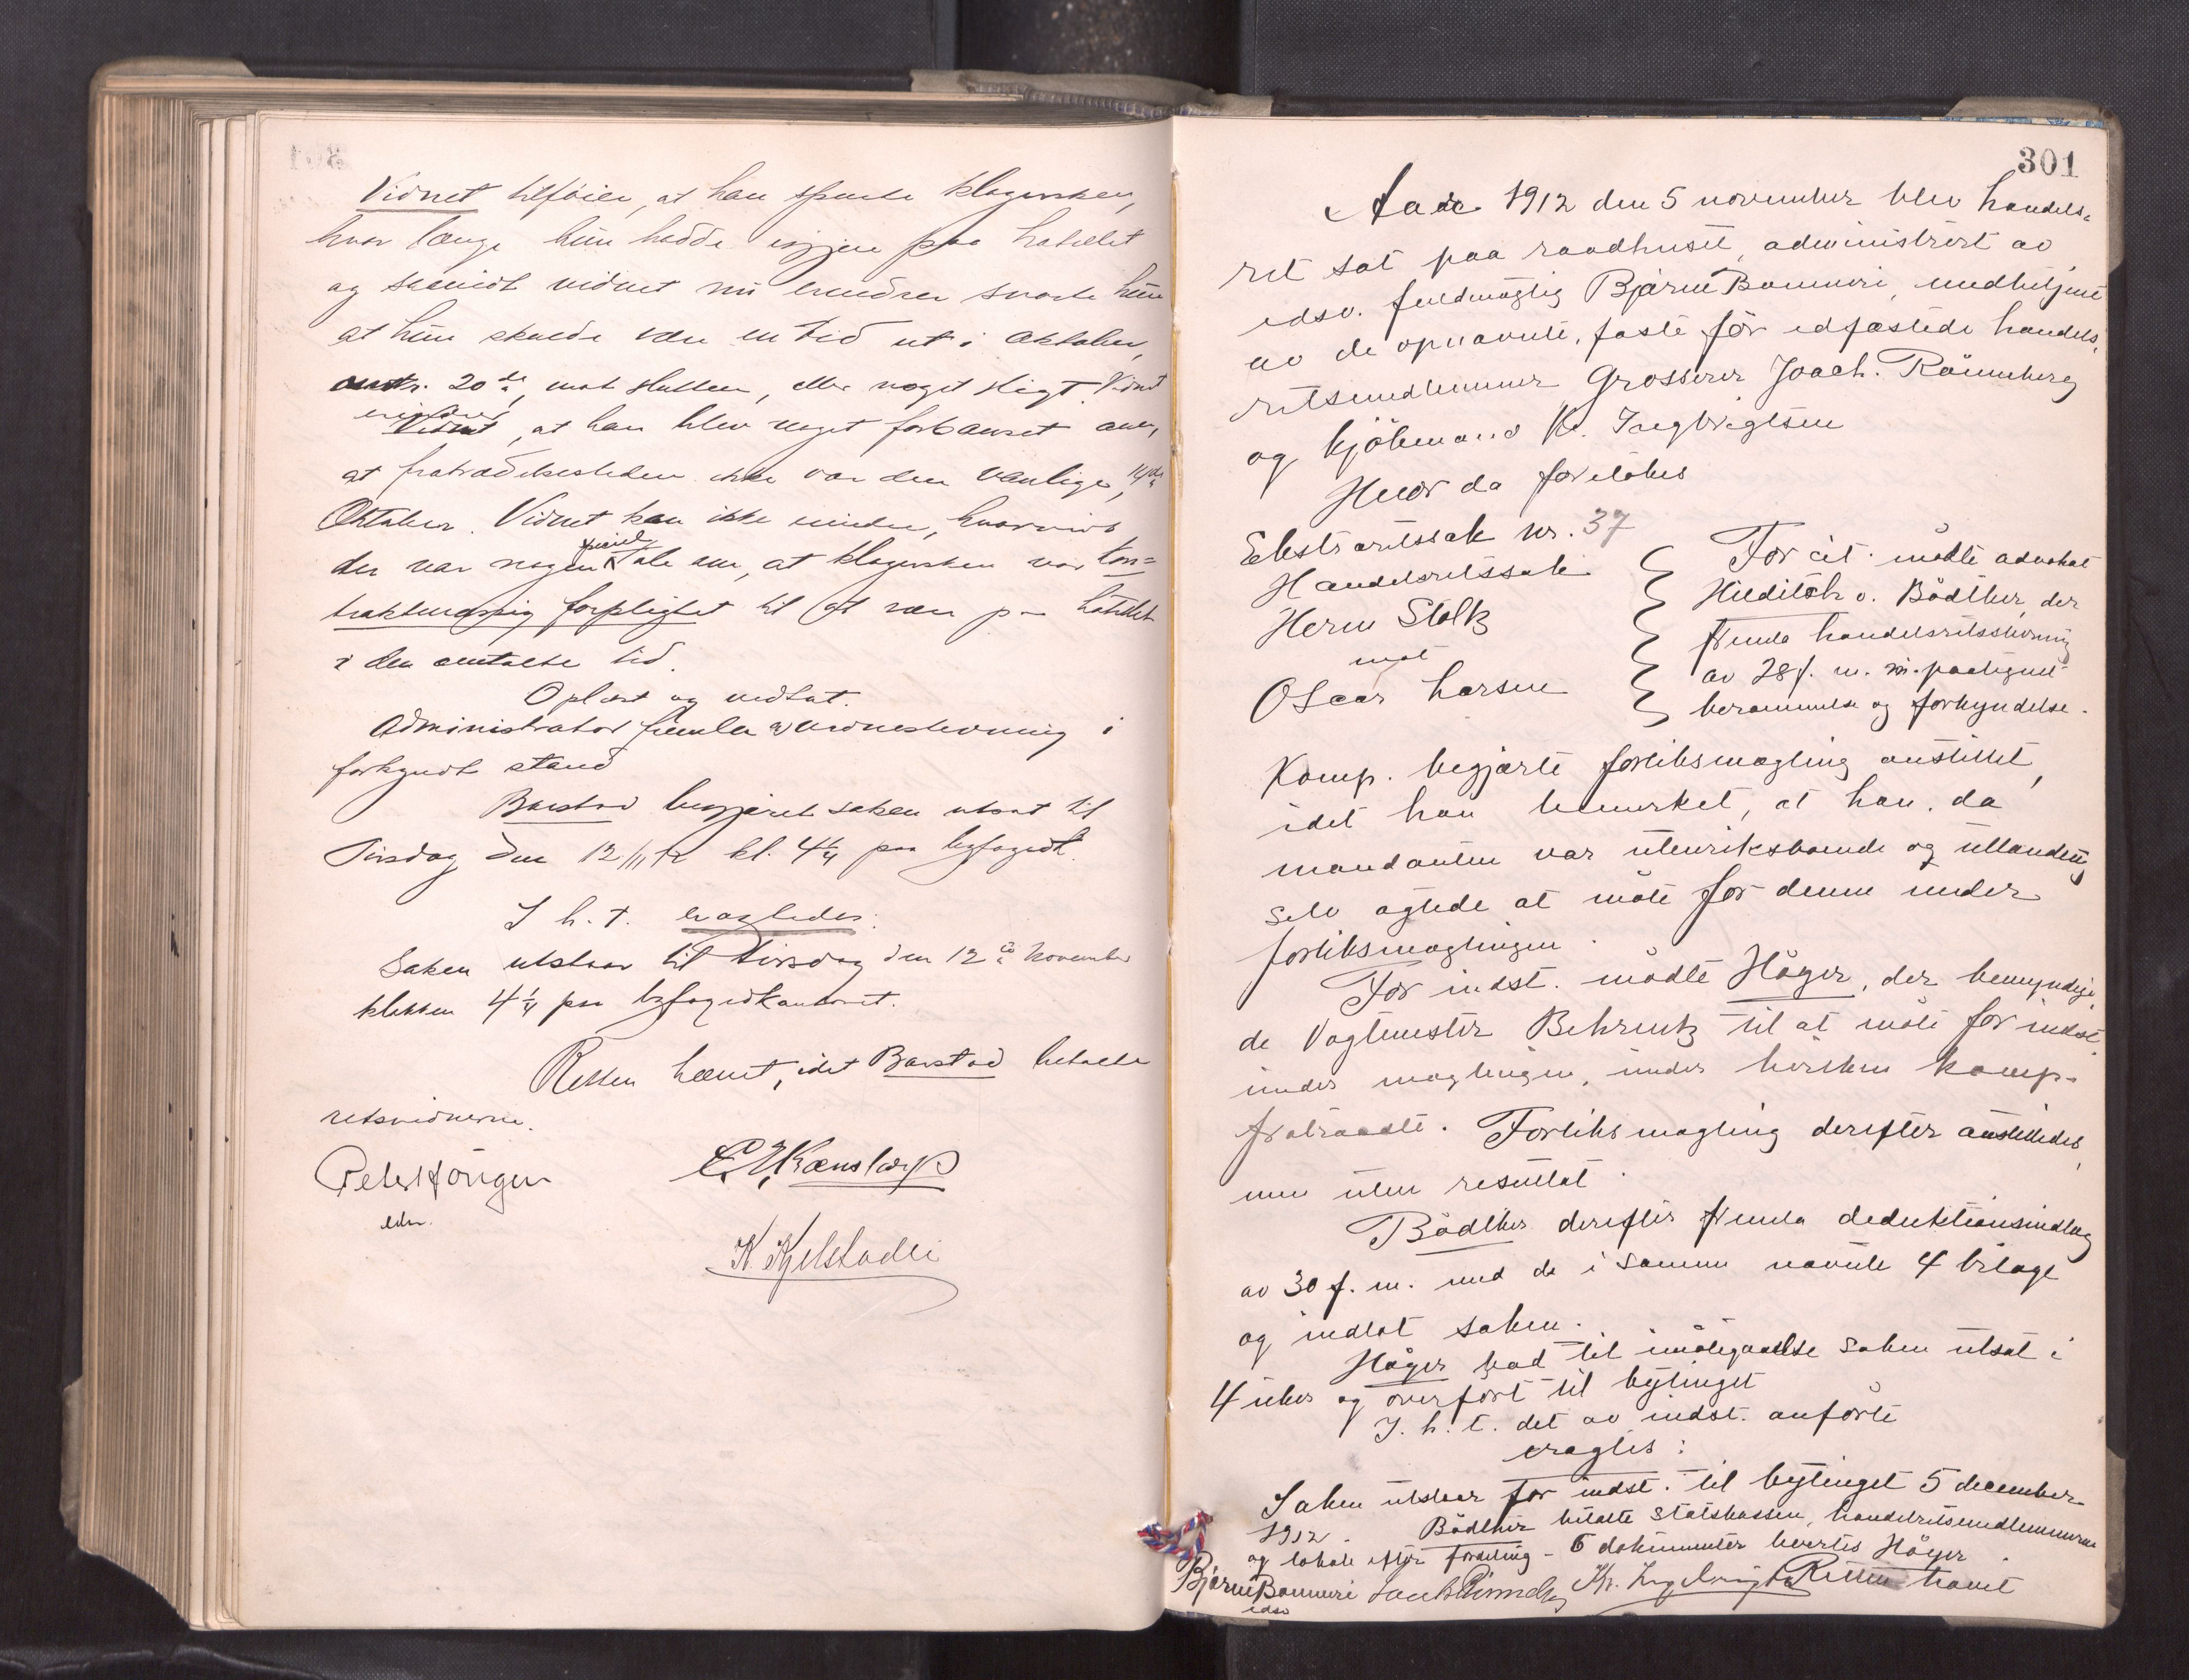 Vidnet tilføier, at han spurte klagersken,
hvor længe hun hadde igjen paa hotellet
og saavidt vidnet nu erindrer svarte hun
at hun skulde være en tid ut i Oktober,
20de, mot slutten, eller noget sligt. Vidnet
erindrer, at han blev noget forbauset over,
at fratrædelsestiden ikke var den vanlige, 14de
Oktober. Vidnet kan ikke mindes, hvorvidt
der var nogen speciel tale om, at klagersken var kon=
traktmæssig forpligtet til at være paa hotellet
i den omtalte tid.
Oplæst og vedtat.
Administrator fremla vidnestevning i
forkyndt stand
Barstad begjæret saken utsat til
Tirsdag den 12/11 12 kl. 4¼ paa byfogedk.
I h. t. eragtedes:
Saken utstaar til tirsdag den 12de November
klokken 4¼ paa byfogedkontoret.
Retten hævet, idet Barstad betalte
retsvidnerne.
Peter Höugen
edsv.
K. Kjelstadli
301
Aar 1912 den 5 november blev handels=
ret sat paa raadhuset, administrert av
edsv. fuldmægtig Bjarne Bonnevi, medbetjent
av de opnævnte, faste før edfæstede handels=
retsmedlemmer Grosserer Joach. Rönneberg
og kjöbmand K. Ingbrigtsen
Hvor da foretokes
Ekstraretssak nr. 37
Handelsretssak
Herm Stoltz
mot
Oscar Larsen
For cit. mödte advokat
v. Bödtker, der
fremla handelsretsstevning
av 28 f. m. m. paategnet
berammelse og forkyndelse.
Komp. begjærte forliksmægling anstillet,
idet han bemerket, at han, da
mandanten var utenriksboende og utlænding
selv agtede at möte for denne under
forliksmæglingen.
For indst. mödte Höyer, der bemyndige=
de Vagtmester Behrentz til at möte for indst.
under mæglingen, under hvilken komp.
fratraadte. Forliksmægling derefter anstilledes,
men uten resultat.
Bödtker derefter fremla deduktionsindlæg
av 30 f. m. med de i samme nævnte 4 bilage
og indlot saken.
Höyer bad til imötegaaelse saken utsat i
4 uker og overfört til bytinget
I. h. t. det av indst. anförte
eragtes:
Saken utstaar for indst. til bytinget 5 december
1912. Bödtker betalte statskassen, handelsretsmedlemmerne
og lokale efter fordeling. 6 dokumenter leveres Höyer.
Retten hævet
Bjarne Bonnevi Joach Rönneberg Kr. Ingbrigtsen
edsv